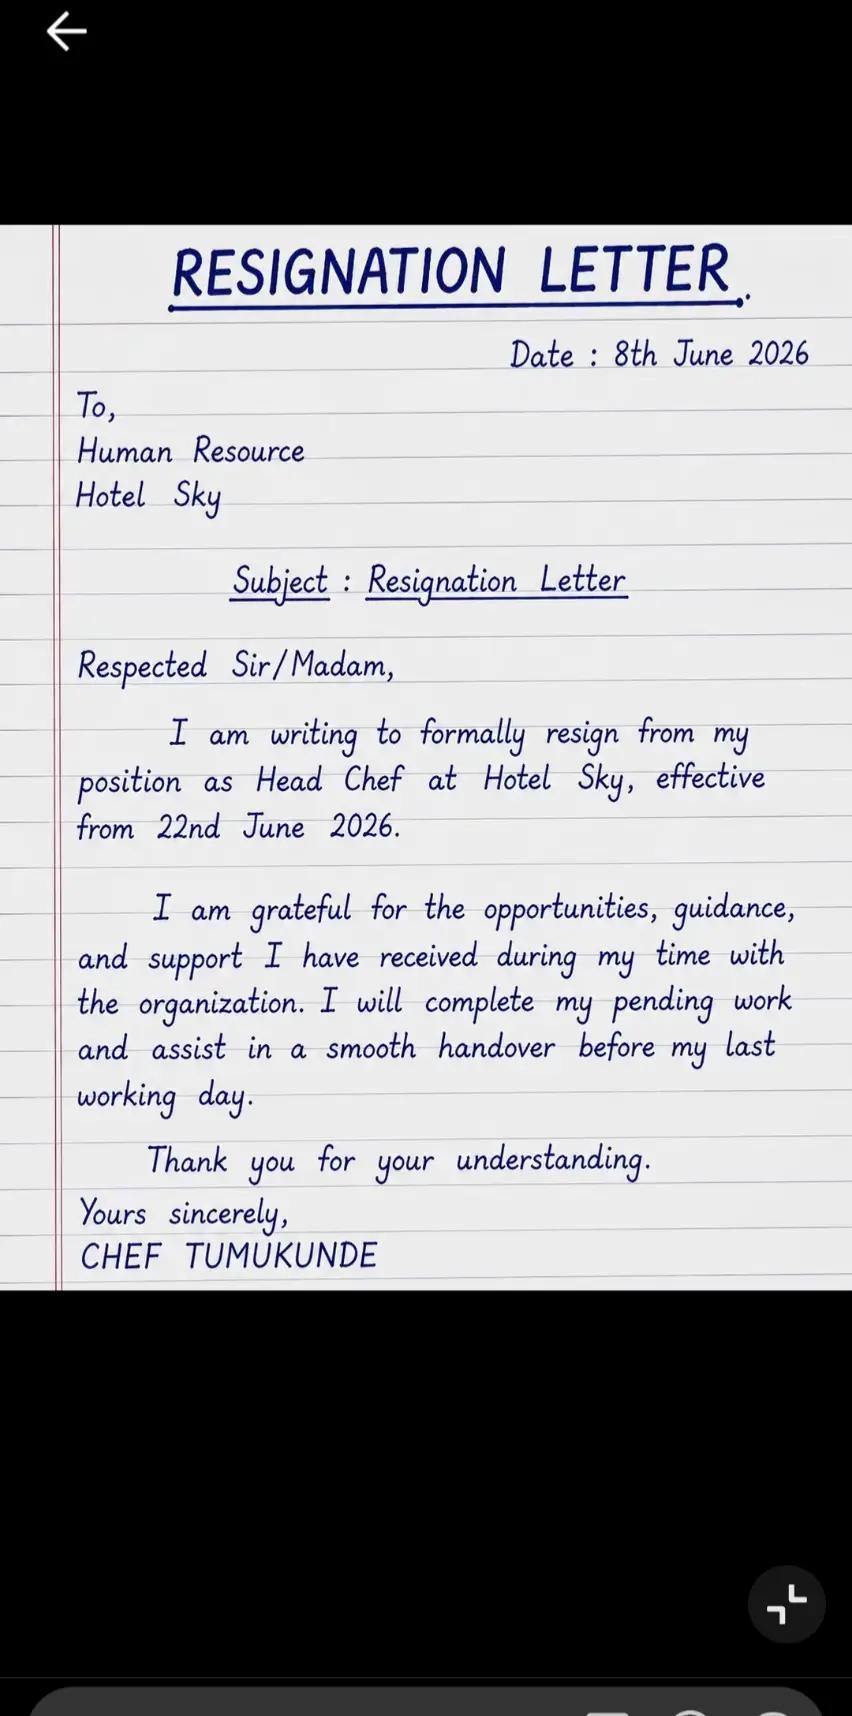 RESIGNATION LETTER.
Date : 8th June 2026
To,
Human Resource
Hotel Sky
Subject : Resignation Letter
Respected Sir/Madam,
I am writing to formally resign from my
position as Head Chef at Hotel Sky, effective
from 22nd June 2026.
I am grateful for the opportunities, guidance,
and support I have received during my time with
the organization. I will complete my pending work
and assist in a smooth handover before my last
working day.
Thank you for your understanding.
Yours sincerely,
CHEF TUMUKUNDE